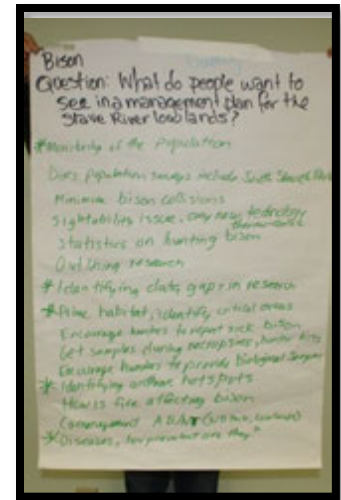 Bison
Question: What do people want to
see in a management plan for the
Slave River lowlands?
* Monitoring of the Population
Does population surveys include South Slave
Minimize bison collisions
Sightability issue, any new technology
statistics on hunting bison
Outlining research
* Identifying data gaps in research
* Prime habitat, identify critical areas
Encourage hunters to report sick bison
Get samples during necropsies, hunter kills
Encourage hunters to provide biological samples
* Identifying anthrax hotspots
How is fire affecting bison
Comanagement AB/NT
* Diseases, how prevalent are they?